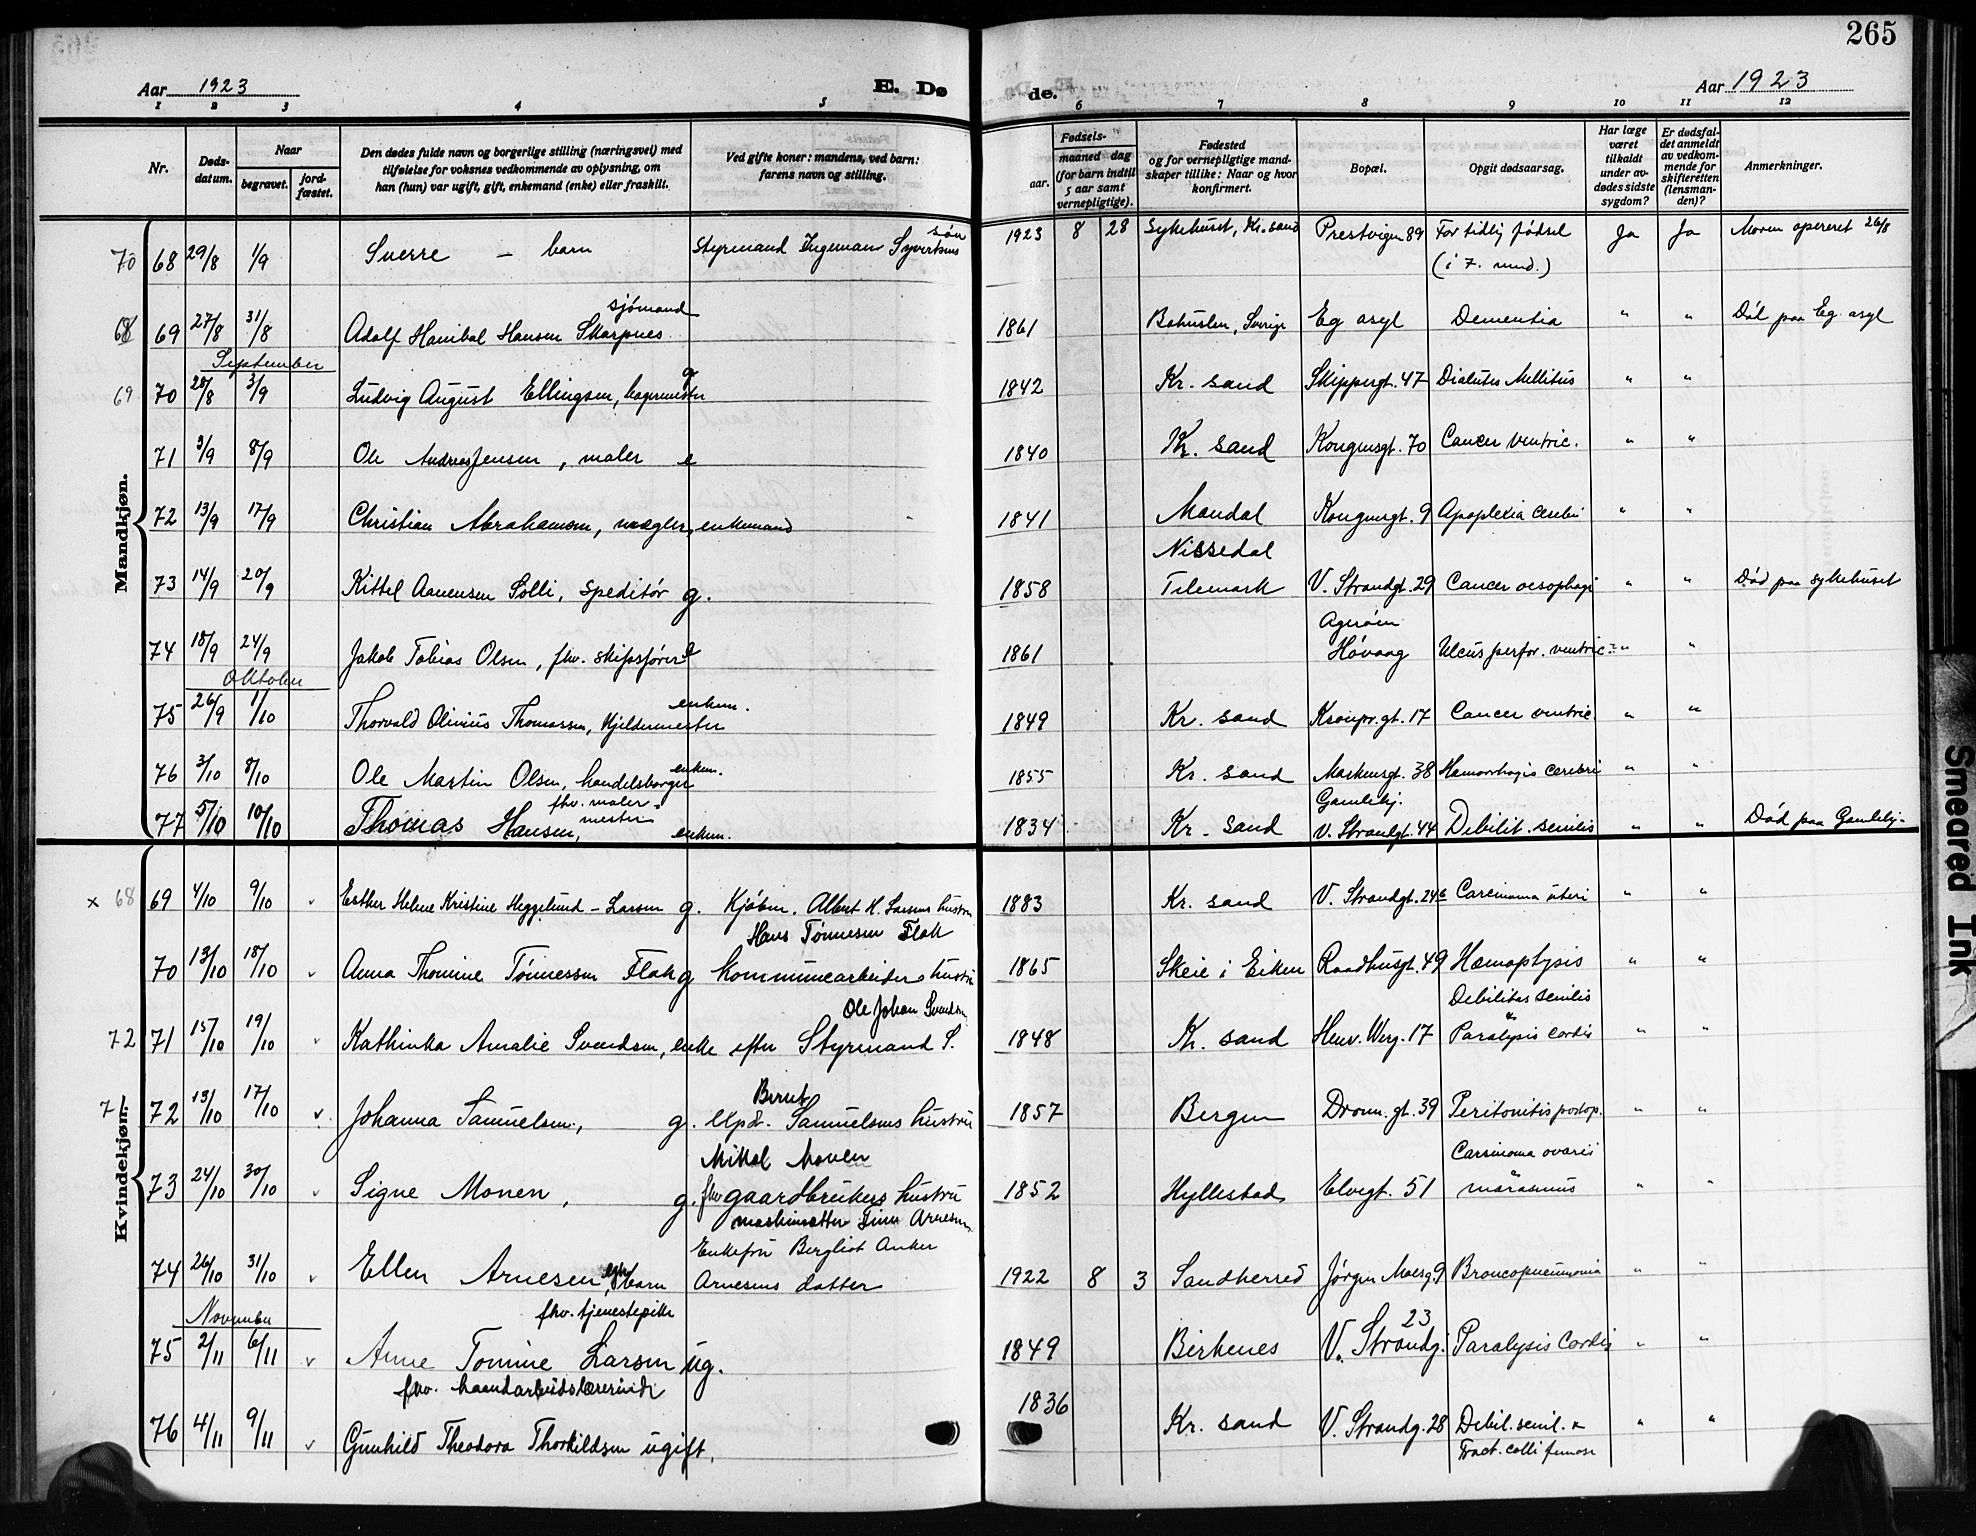 265
Aar 1923
E. Dø
de.
Aar 1923
1 2 3 4 5 6 7 8 9 10 11 12
Nr.
Dødsdatum.
Naar
begravet.
jordfæstet.
Den dødes fulde navn og borgerlige stilling (næringsvei) med tilføielse for voksnes vedkommende av oplysning, om han (hun) var ugift, gift, enkemand (enke) eller fraskilt.
Ved gifte koner: mandens, ved barn: farens navn og stilling.
Fødsels-
aar.
maaned dag
(for barn indtil 5 aar samt vernepligtige).
Fødested
og for vernepligtige mandskaper tillike: Naar og hvor konfirmert.
Bopæl.
Opgit dødsaarsag.
Har læge været tilkaldt under avdødes sidste sygdom?
Er dødsfaldet anmeldt av vedkommende for skifteretten (lensmanden)?
Anmerkninger.
Mandkjøn.
70 68 29/8 1/9 Sverre – barn Styrmand Ingeman Syvertsens søn 1923 8 28 Sykehuset, Kr.sand Prestvigen 89 For tidlig fødsel (i 7. mnd.) Ja Ja Moren opereret 26/8
68 69 27/8 31/8 Adolf Hanibal Hansen Skarpnes sjömand 1861 Bohuslen, Sverige Eg asyl Dementia " " Död paa Eg asyl
September
69 70 28/8 3/9 Ludvig August Ellingsen, bagermester g 1842 Kr. sand Skippergt. 47 Diabetes Mellitus " "
71 3/9 8/9 Ole Andreas Jensen, maler e 1840 Kr. sand Kongensgt. 70 Cancer ventric. " "
72 13/9 17/9 Christian Abrahamsen, mægler, enkemand 1841 Mandal Kongensgt. 9 Apoplexia cerebri " "
73 14/9 20/9 Kittel Aanensen Solli, speditør g. 1858 Nissedal Telemark V. Strandgt. 29 Cancer oesophagi " " Død paa sykehuset
74 18/9 24/9 Jakob Tobias Olsen, fhv. skipsfører e 1861 Agerøen Høvaag Ulcus perfor. ventric. " "
Oktober
75 26/9 1/10 Thorvald Olinius Thomassen, Kjeldermester enkem. 1849 Kr. sand Kronpr.gt. 17 Cancer ventric " "
76 3/10 8/10 Ole Martin Olsen, handelsborger enkem. 1855 Kr. sand Markensgt. 38 Hæmorrhagia cerebri " "
77 5/10 10/10 Thomas Hansen, fhv. malermester enkem. 1834 Kr. sand Gamlehj. V. Strandgt. 44 Debilit. senilis " " Død paa Gamlehj.
Kvindekjøn.
x 68 69 4/10 9/10 v Esther Helene Kristine Heggelund – Larsen g. Kjøbm. Albert H. Larsens hustru 1883 Kr. sand V. Strandgt. 24b Carcinoma uteri " "
70 13/10 18/10 v Anna Thomine Tönnessen Flak g Hans Tönnesen Flak kommunearbeiders hustru 1865 Skeie i Eiken Raadhusgt. 49 Hæmoptysis " "
72 71 15/10 19/10 v Kathinka Amalie Svendsen, enke efter Styrmand S. Ole Johan Svendsen 1848 Kr. sand Henr. Werg. 17 Debilitas senilis & Paralysis cordis " "
7 72 13/10 17/10 v. Johanna Samuelsen, g. Bernt expd. Samuelsens hustru 1857 Bergen Dronn. gt. 39 Peritonitis postop. " "
73 24/10 30/10 v Signe Monen, g. Mikkal Monen fhv gaardbrukers hustru 1852 Hyllestad Elvegt. 51 Carsinoma ovarii & marasmus " "
74 26/10 31/10 v Ellen Arnesen, barn Enkefru Bergliot Anker Arnesens datter 1922 8 3 Sandherred Jørgen Moesg. 9 Broncopneumonia " "
November
75 2/11 6/11 v Anne Tomine Larsen ug. fhv. tjenestepike 1849 Birkenes V. Strandg. 23 Paralysis Cordis " "
76 4/11 9/11 v Gunhild Theodora Thorkildsen ugift. fhv. haandarbeidslærerinde 1836 Kr. sand V. Strandg. 28 Debil. senil. & Fract. colli femoris " "
Smeared Ink